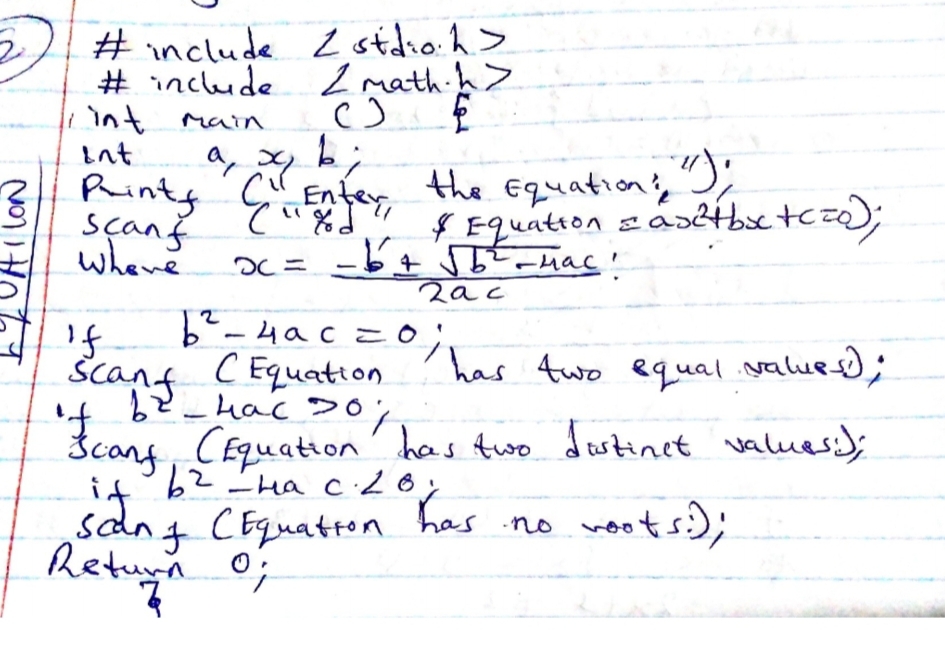 2
# include < stdio.h >
# include < math.h >
int main () {
int a, x, b;
Printf (" Enter the Equation: ");
scanf ("%d" & Equation = ax²+bx+c=0);
Where x = -b ± √b²-4ac :
2ac
if b² - 4ac = 0;
scanf (Equation has two equal values:);
if b² - 4ac > 0;
scanf (Equation has two distinct values:);
if b² - 4ac < 0;
scanf (Equation has no roots:);
Return 0;
}